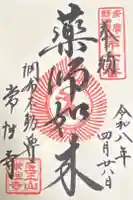 奉拝
令和八年
四月廿八日
薬師如来
調布不動尊
常性寺